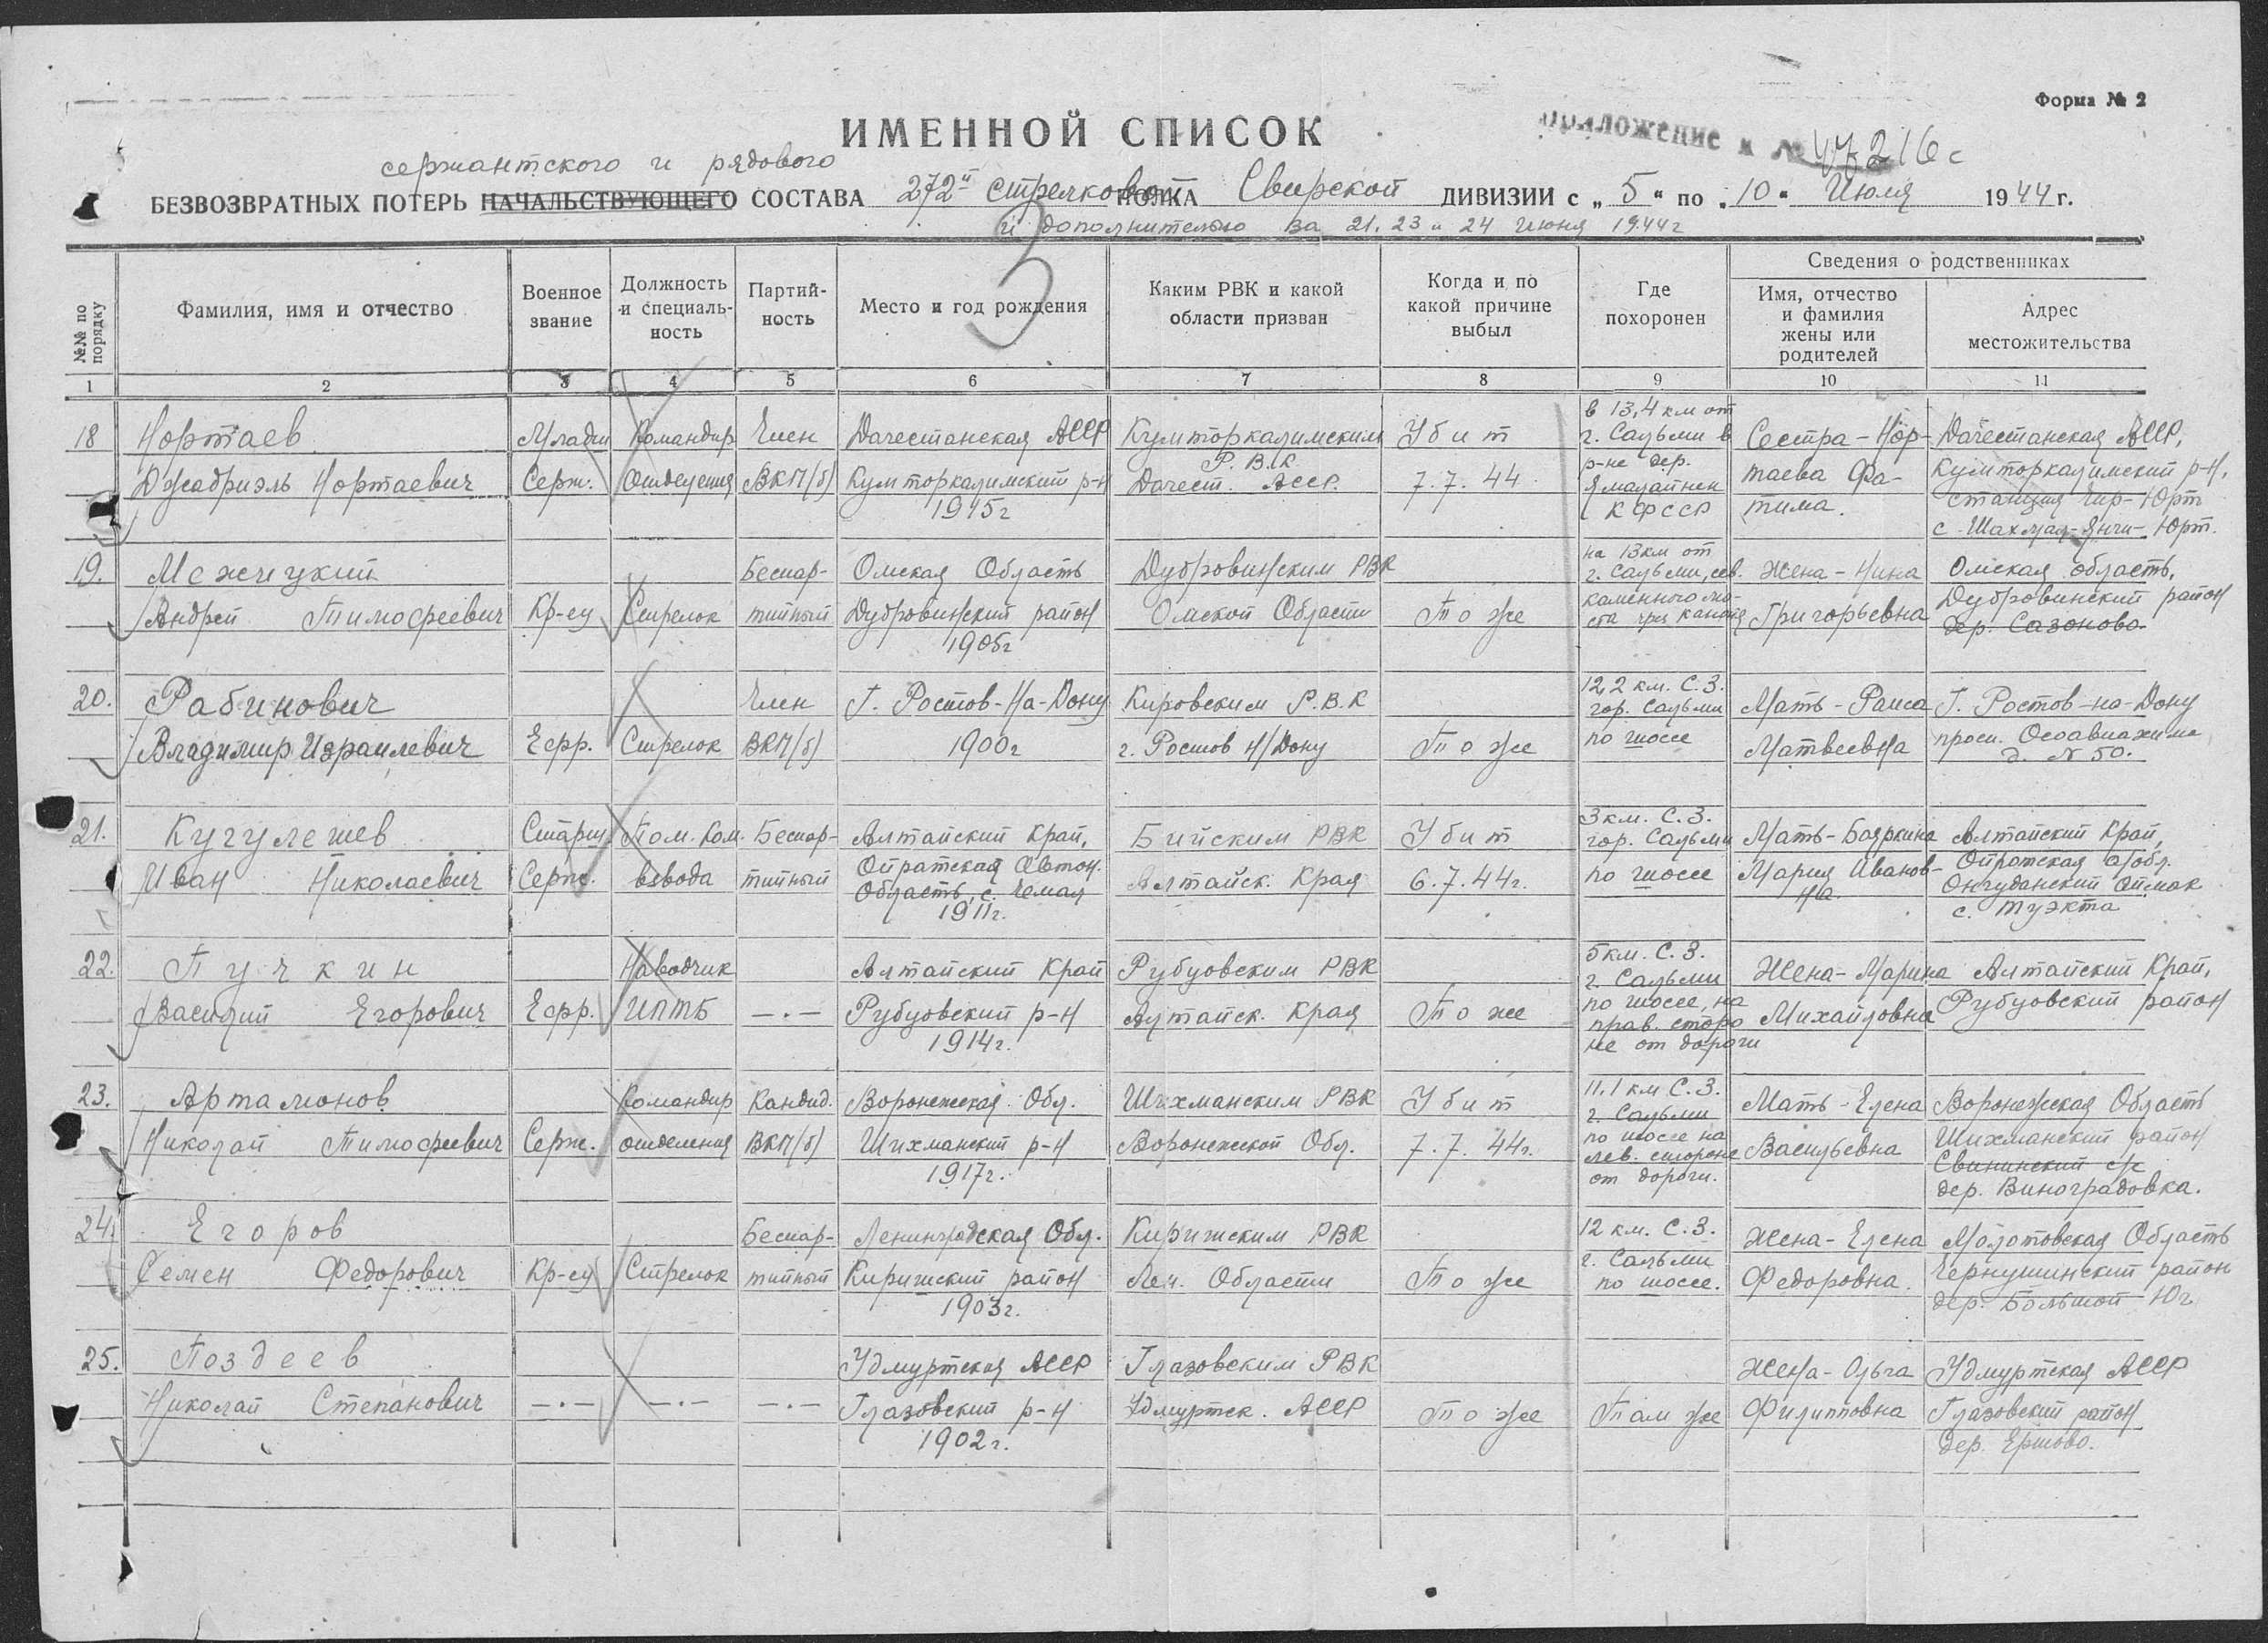 Форма № 2
ИМЕННОЙ СПИСОК
Приложение к № 47216с
сержантского и рядового
БЕЗВОЗВРАТНЫХ ПОТЕРЬ НАЧАЛЬСТВУЮЩЕГО СОСТАВА 272й стрелковой ПОЛКА Свирской ДИВИЗИИ с „5" по „10" Июля 1944 г.
и дополнительно за 21, 23 и 24 июня 1944 г
№№ по порядку
Фамилия, имя и отчество
Военное звание
Должность и специальность
Партийность
Место и год рождения
Каким РВК и какой области призван
Когда и по какой причине выбыл
Где похоронен
Сведения о родственниках
Имя, отчество и фамилия жены или родителей
Адрес местожительства
1 2 3 4 5 6 7 8 9 10 11
18 Нортаев Джабриэль Нортаевич
Младш Серж.
Командир Отделения
Член ВКП/б/
Дагестанская АССР Кумторкалимский р-н 1915г
Кумторкалимским Р.В.К. Дагест. АССР.
Убит 7.7.44
в 13,4 км от г. Сальми в р-не дер. КФССР
Сестра-Нортаева Фатима.
Дагестанская АССР, Кумторкалимский р-н, станция Чир-Юрт с. Юрт.
19. Межецкий Андрей Тимофеевич
Кр-ец
Стрелок
Беспартийный
Омская Область Дубровинский район 1905г
Дубровинским РВК Омской Области
То же
на 13км от г. Сальми, сев. каменного моста
Жена-Нина Григорьевна
Омская область, Дубровинский район дер. Сазоново.
20. Рабинович Владимир Израилевич
Ефр.
Стрелок
Член ВКП/б/
Г. Ростов-На-Дону 1900г
Кировским Р.В.К г. Ростов Н/Дону
То же
12,2 км. С.З. гор. Сальми по шоссе
Мать-Раиса Матвеевна
Г. Ростов-на-Дону просп. Осоавиахима д. № 50.
21. Кугулешев Иван Николаевич
Старш Серж.
Пом. Ком. взвода
Беспартийный
Алтайский край, Ойратская Автон. Область, с. Чемал 1911г.
Бийским РВК Алтайск. Края
Убит 6.7.44г.
3км. С.З. гор. Сальми по шоссе
Мать-Бояркина Мария Ивановна
Алтайский Край, Ойротская а/обл. Онгуданский Аймак с. Туэкта
22. Пучкин Василий Егорович
Ефр.
Наводчик ИПТБ
—·—
Алтайский Край Рубцовский р-н 1914г.
Рубцовским РВК Алтайск. Края
То же
5км. С.З. г. Сальми по шоссе, на прав. стороне от дороги
Жена-Марина Михайловна
Алтайский Край, Рубцовский район
23. Артамонов Николай Тимофеевич
Серж.
Командир отделения
Кандид. ВКП/б/
Воронежская Обл. Шихманский р-н 1917г.
Шихманским РВК Воронежской Обл.
Убит 7.7.44г.
11.1 км С.З. г. Сальми по шоссе на лев. стороне от дороги.
Мать-Елена Васильевна
Воронежская Область Шихманский район Свининский с/с дер. Виноградовка.
24. Егоров Семен Федорович
Кр-ец
Стрелок
Беспартийный
Ленинградская Обл. Киришский район 1903г.
Киришским РВК Лен. Области
То же
12 км. С.З. г. Сальми по шоссе.
Жена-Елена Федоровна.
Молотовская Область Чернушинский район дер. Большой Юг
25. Поздеев Николай Степанович
—·—
—·—
—·—
Удмуртская АССР Глазовский р-н 1902г.
Глазовским РВК Удмуртск. АССР
То же
Там же
Жена-Ольга Филипповна
Удмуртская АССР Глазовский район дер. Ершово.